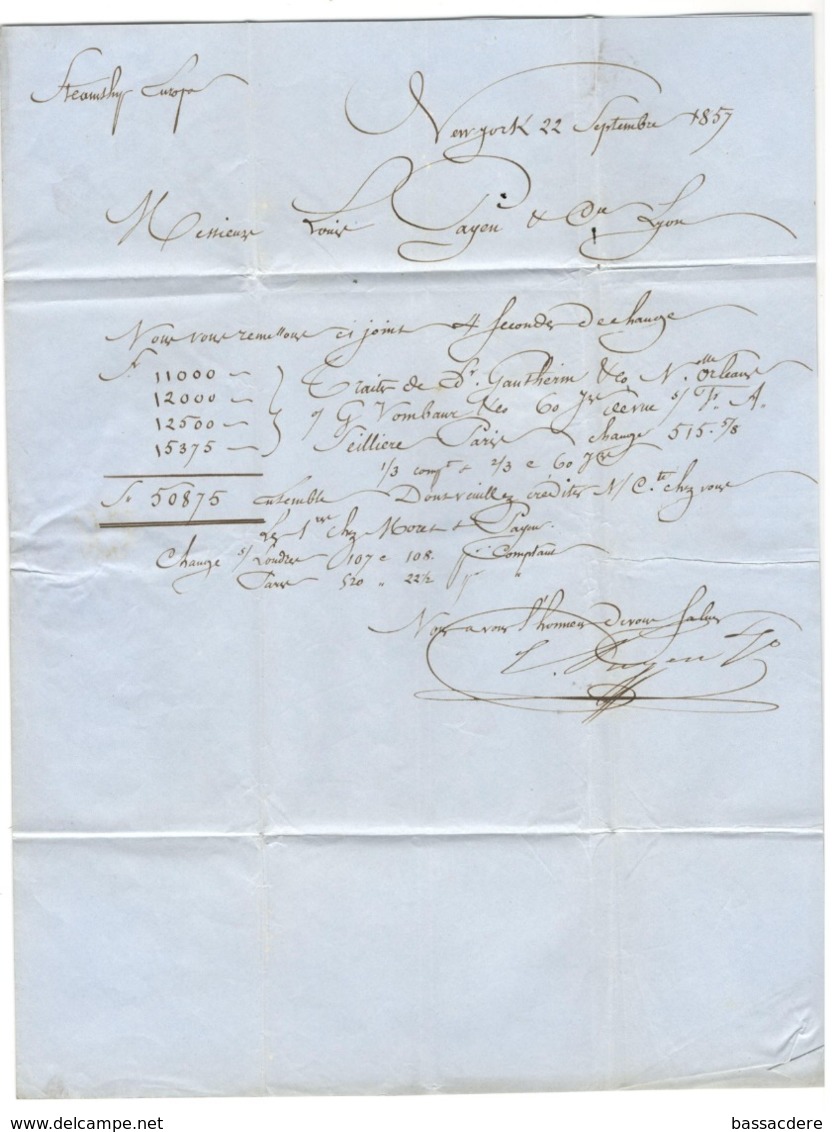 Steamship Europa
New york 22 Septembre 1857
Messieurs Louis Payen & Cie Lyon
Nous vous remettons ci joint 4 secondes de change
fr 11000 Traites de Gautherin & Co Nlle Orleans
12000 G Vombaur & Co 60 jrs de vue s/ Fs. A.
12500 Seilliere Paris change 515.5/8
15375 1/3 compt & 2/3 a 60 jrs
fr 50875 ensemble Dont veuillez créditer N/ Cte chez vous
Les 1eres chez Moret & Payen.
Change s/ Londres 107 a 108. Comptant
Paris 520 " 22½ "
Nous avons l'honneur de vous saluer
L. Payen & Co
www.delcampe.net
bassacdere